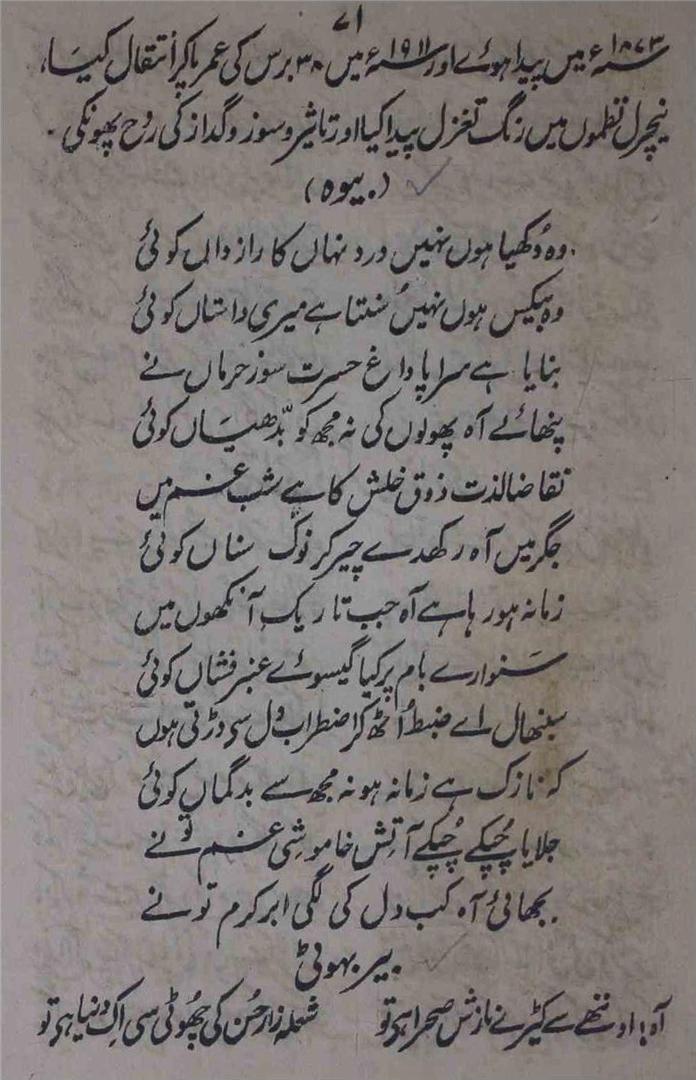 ۷۱
۱۸۷۳ء میں پیدا ہوئے اور ۱۹۱۱ء میں ۳۸ برس کی عمر پا کر انتقال کیا،
نیچرل نظموں میں رنگ تغزل پیدا کیا اور تاثیر و سوز و گداز کی رُوح پھونکی۔
(بیوہ)
وہ دُکھیا ہوں نہیں درد نہاں کا راز داں کوئی
وہ بیکس ہوں نہیں سُنتا ہے میری داستاں کوئی
بنایا ہے سراپا داغ حسرت سوز حرماں نے
پنھائے آہ پھولوں کی نہ مجھ کو بدّھیاں کوئی
تقاضا لذت ذوق خلش کا ہے شب غم میں
جگر میں آہ رکھدے چیر کر نوک سناں کوئی
زمانہ ہو رہا ہے آہ جب تاریک آنکھوں میں
سنوارے بام پر کیا گیسوئے عنبر فشاں کوئی
سنبھال اے ضبط اُٹھ کر اضطراب دل سی ڈرتی ہوں
کہ نازک ہے زمانہ ہو نہ مجھ سے بدگماں کوئی
جلایا چُپکے چُپکے آتش خاموشی غم تو نے
بجھائی آہ کب دل کی لگی ابر کرم تو نے
بیر بہوٹی
آہ! او ننھے سے کیڑے نازش صحرا ہی تو شعلہ زار حُسن کی چھوٹی سی اِک دنیا ہی تو